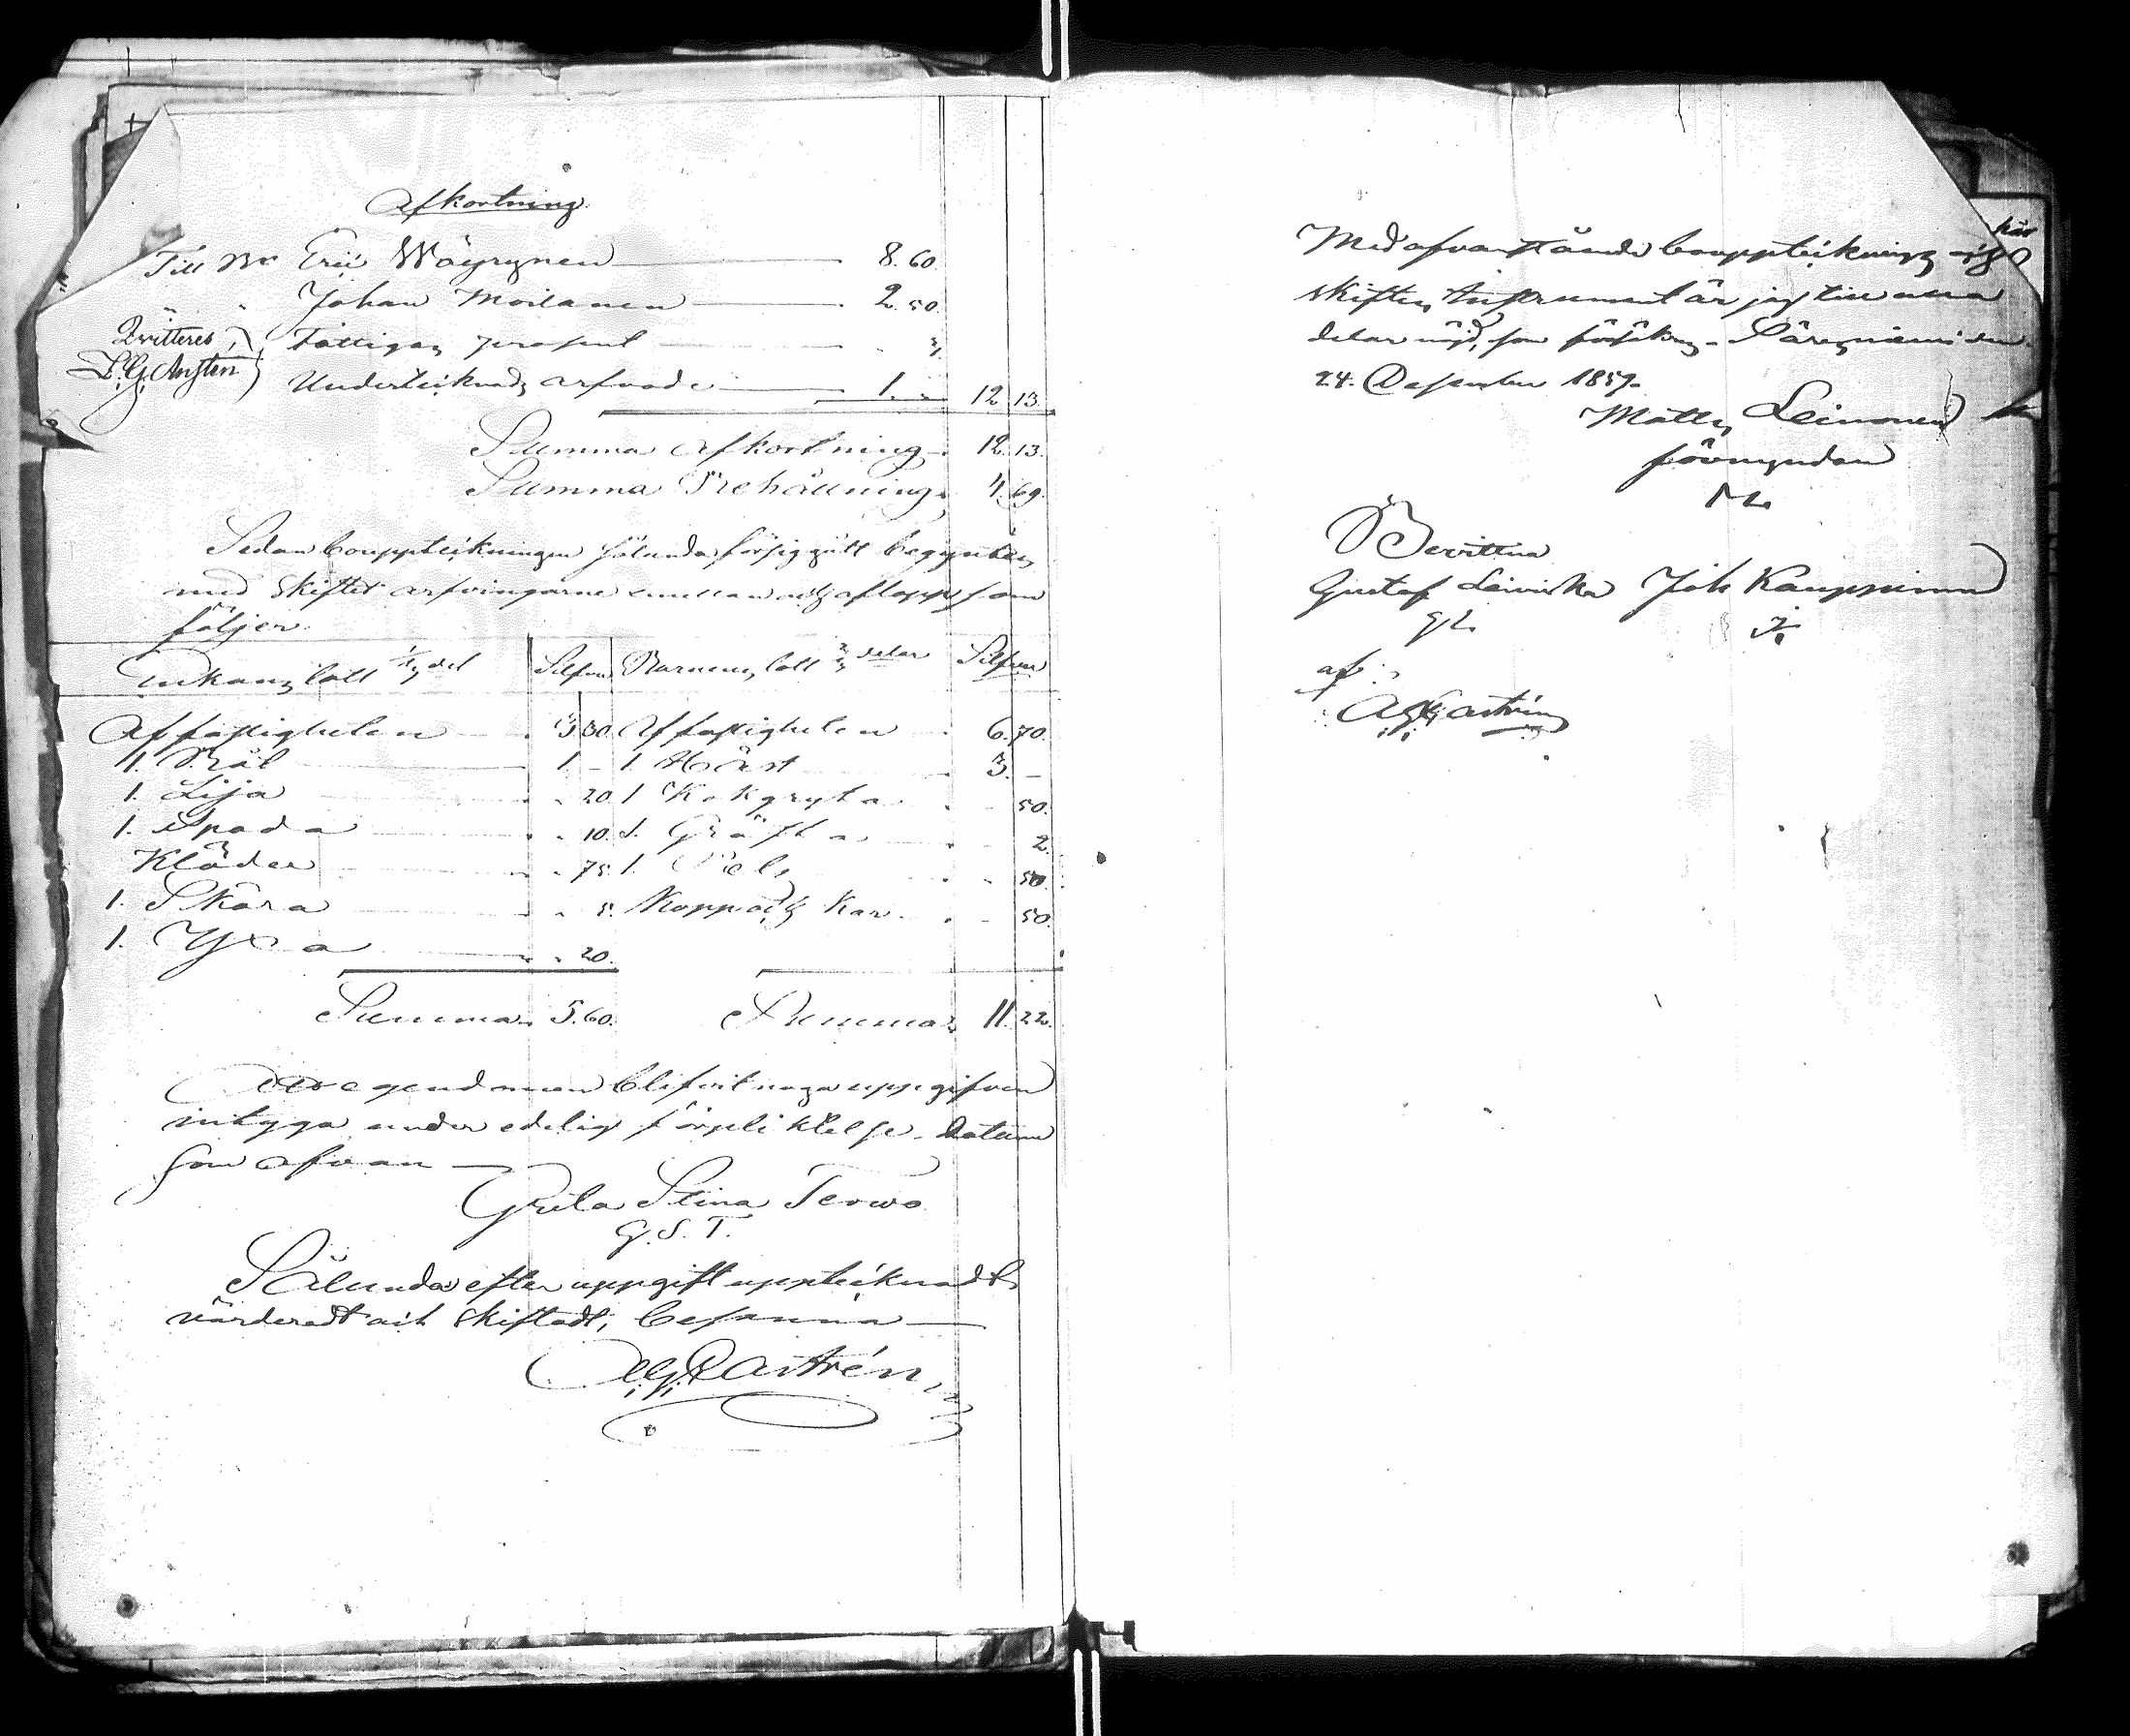 Afkortning
Till Bn Eric Wäyrynen 8. 60.
" " Johan Moilanen 2. 50.
Qvitteras, Fattigas procent " 3.
L. G. Aejten Undertecknads arfvode 1. " 12 13.
Summa afkortning 12. 13.
Summa Behållning 4. 69.
Sedan bouppteckningen sålunda försiggått begyntes
med skiftet arfvingarne emellan och aflopp som
följer.
Enkans lott 1/3 del Silfver Barnens lott 2/3 delar Silfver
Af fastigheten 3 30. Af fastigheten 6. 70.
1. 1 – 1. Häst 3. –
1. Lija " 20. 1 Kokgryta " 50.
1. Spada " 10. 1. Gräfta " 2.
Kläder " 75. 1. Pels " 50.
1. Skära " 5. Kopp och Kar " 50.
1. Yxa " 20.
Summa 5. 60. Summa 11. 22.
egendomen blifvit noga uppgifven
intyga under edelig förpliktelse. Datum
som ofvan
Greta Stina Terwo
G. S. T.
Sålunda efter uppgift uppteiknadt,
värderadt och skiftadt, besanna
A G Castrén
Med ofvanstående bouppteikning och
skiftes Instrument är jag till alla
delar nöjd, som försäkras. Säresniemi den
24. December 1859.
Matts Leinonen
förmyndare
M L
Bevittna
Gustaf Leiviska Joh Kauppinen
G L J K
af:
A G Castrén